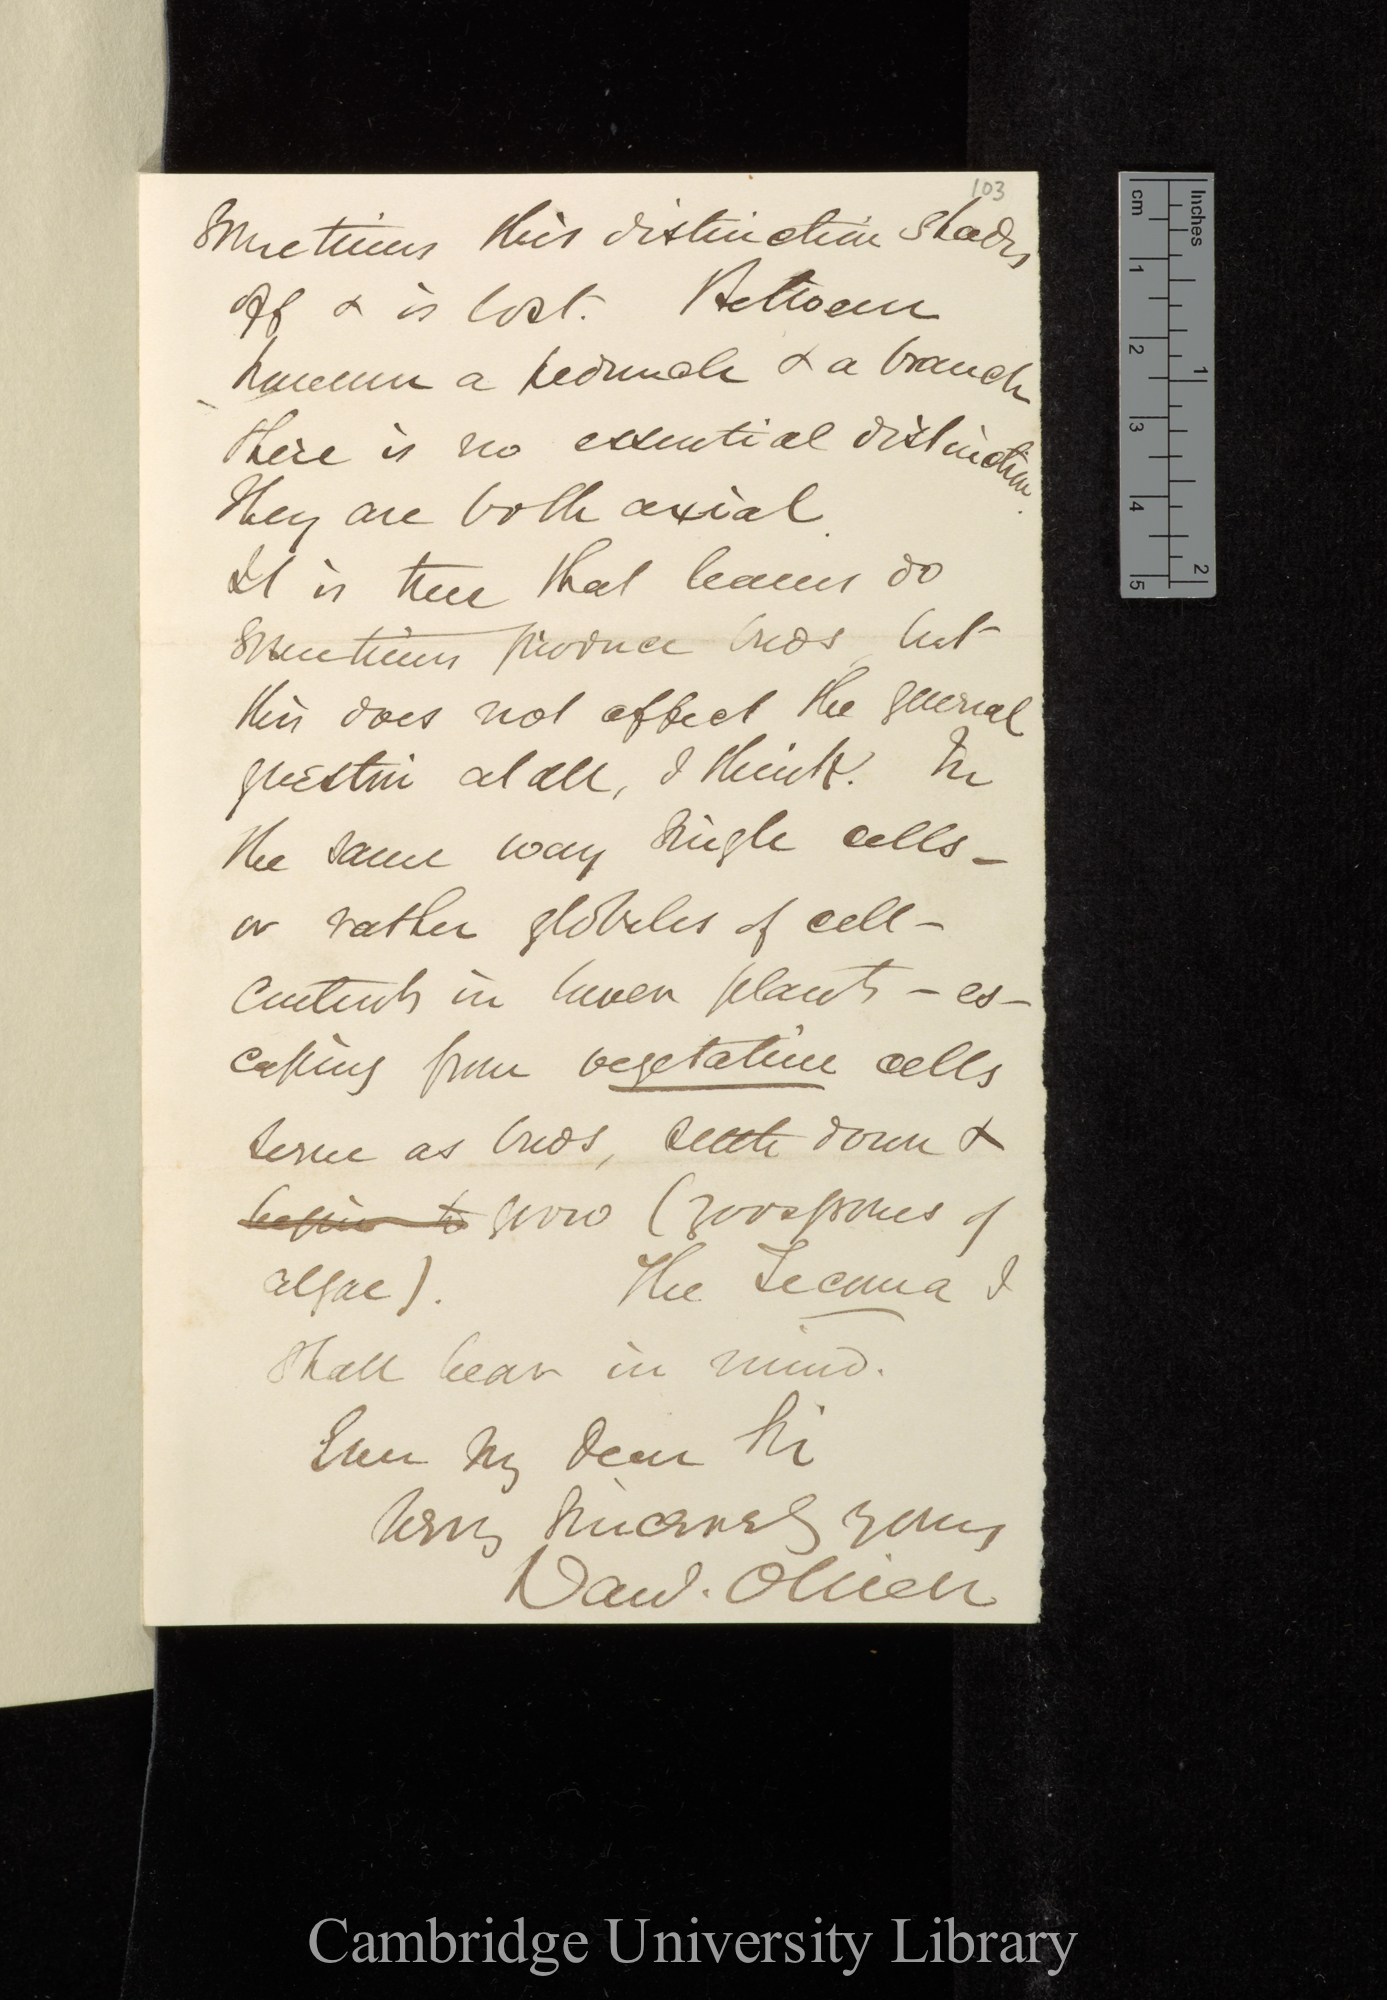 103
Sometimes this distinction shades
off & is lost. Between
however a peduncle & a branch
there is no essential distinction.
They are both axial.
It is true that leaves do
sometimes produce buds, but
this does not affect the general
question at all, I think. In
the same way single cells –
or rather globules of cell-
contents in lower plants – es-
caping from vegetative cells
serve as buds, settle down &
begin to grow (zoospores of
algae). The Tecoma I
shall bear in mind.
Ever My dear Sir
Very sincerely yours
Danl. Oliver
cm
1
2
3
4
5
Inches
1
2
Cambridge University Library